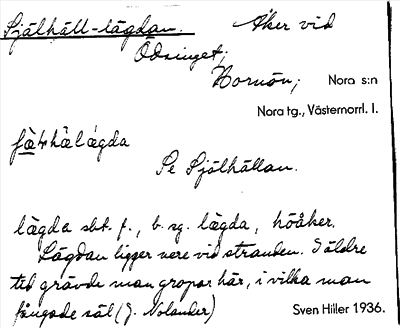 Själhäll-lägdan. Åker vid
Ödsinget;
Hornön; Nora s:n
Nora tg., Västernorrl. l.
Se Själhällan.
lägda sbt. f., b. sg. lägda, höåker.
Lägdan ligger nere vid stranden. I äldre
tid grävde man gropar här, i vilka man
fångade säl (J. Nolander) Sven Hiller 1936.